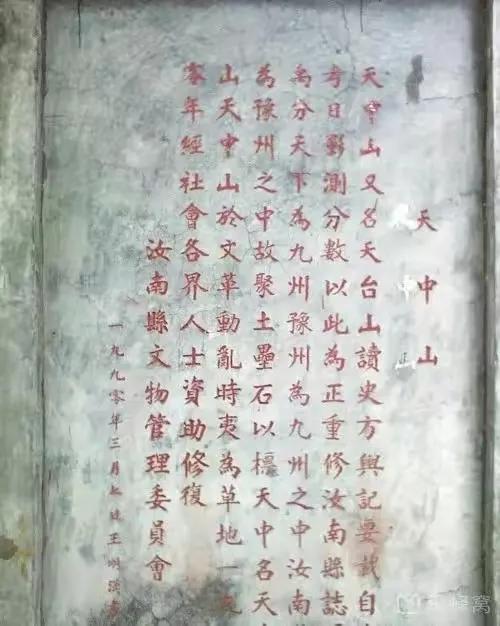 天中山
天中山又名天台山讀史方輿記要載自
考日影測分數以此為正重修汝南縣誌
禹分天下為九州豫州為九州之中汝南
為豫州之中故聚土壘石以標天中名天
山天中山於文革動亂時夷為草地一九
零年經社會各界人士資助修復
汝南縣文物管理委員會
一九九零年三月 王
蜂窝